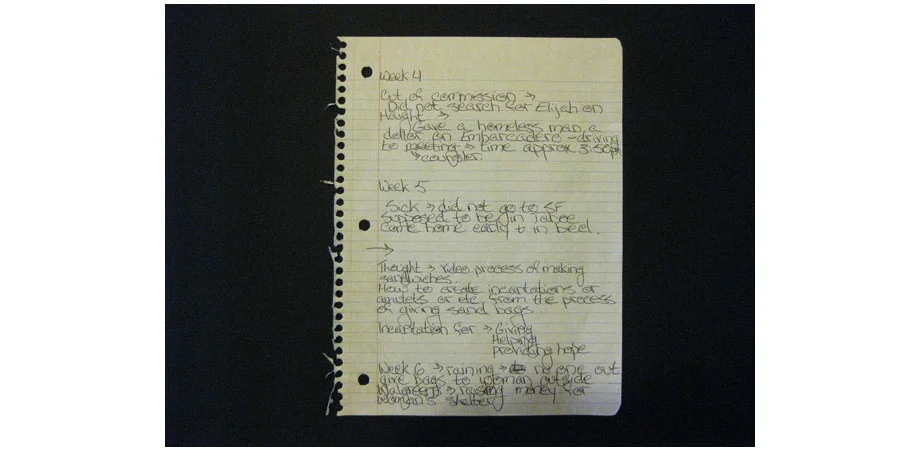 Week 4
Out of commission →
Did not search for Elijah on
Haight →
Gave a homeless man a
dollar on Embarcadero - driving
to meeting → time approx 3:50pm
→ youngster.
Week 5
Sick → did not go to SF
Supposed to be in Tahoe
Came home early & in bed.
→
Thought → Video process of making
sandwiches.
How to create incantations or
amulets or etc from the process
of giving sand bags
Incantation for → Giving
Helping
providing hope
Week 6 → raining → no one out
give bags to woman outside
Walgreens → raising money for
Woman's shelter